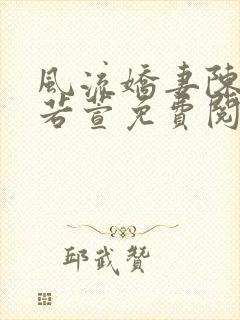 風流嬌妻陳
若萱免費閱
邱武贊